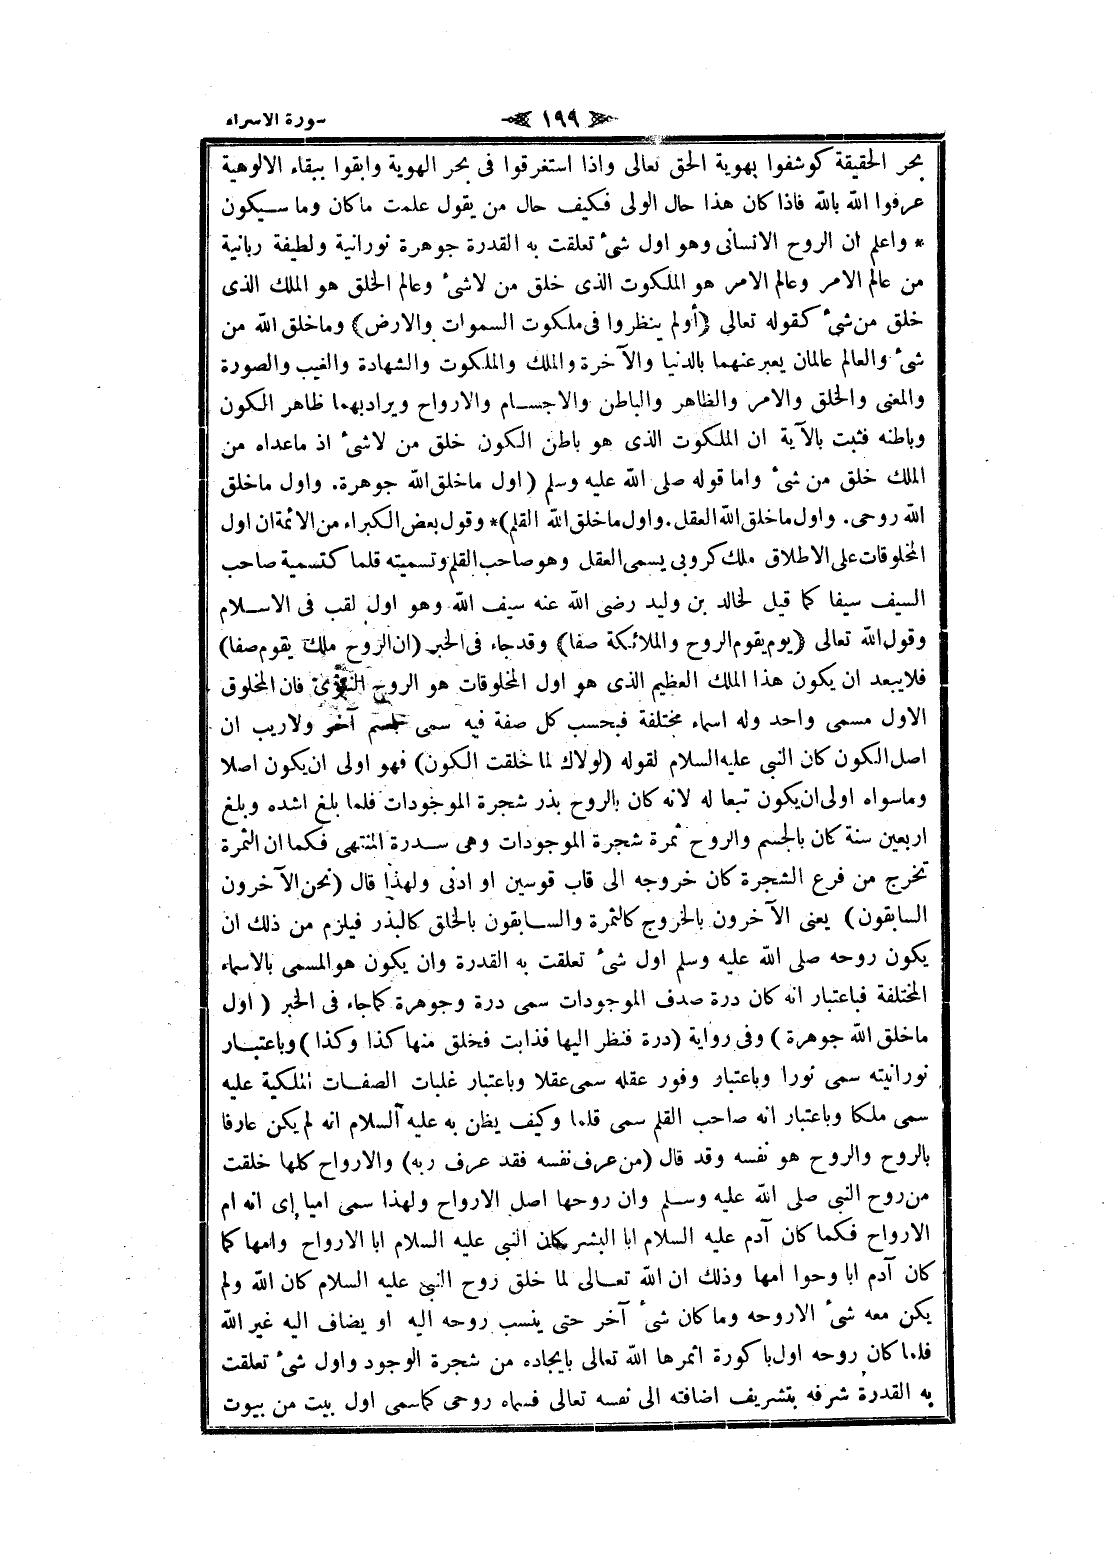 ﴿ ١٩٩ ﴾ سورة الاسراء
بحر الحقيقة كوشفوا بهوية الحق تعالى واذا استغرقوا فى بحر الهوية وابقوا ببقاء الالوهية
عرفوا الله بالله فاذا كان هذا حال الولى فكيف حال من يقول علمت ما كان وما سيكون
* واعلم ان الروح الانسانى وهو اول شىٔ تعلقت به القدرة جوهرة نورانية ولطيفة ربانية
من عالم الامر وعالم الامر هو الملكوت الذى خلق من لاشىٔ وعالم الخلق هو الملك الذى
خلق من شىٔ كقوله تعالى (أولم ينظروا فى ملكوت السموات والارض) وما خلق الله من
شىٔ والعالم عالمان يعبر عنهما بالدنيا والآخرة والملك والملكوت والشهادة والغيب والصورة
والمعنى والخلق والامر والظاهر والباطن والاجسام والارواح ويراد بهما ظاهر الكون
وباطنه فثبت بالآية ان الملكوت الذى هو باطن الكون خلق من لاشىٔ اذ ماعداه من
الملك خلق من شىٔ واما قوله صلى الله عليه وسلم (اول ماخلق الله جوهرة. واول ماخلق
الله روحى. واول ماخلق الله العقل. واول ماخلق الله القلم)* وقول بعض الكبراء من الائمة ان اول
المخلوقات على الاطلاق ملك كروبى يسمى العقل وهو صاحب القلم وتسميته قلما كتسمية صاحب
السيف سيفا كما قيل لخالد بن وليد رضى الله عنه سيف الله وهو اول لقب فى الاسلام
وقول الله تعالى (يوم يقوم الروح والملائكة صفا) وقد جاء فى الخبر (ان الروح ملك يقوم صفا)
فلايبعد ان يكون هذا الملك العظيم الذى هو اول المخلوقات هو الروح النبوى فان المخلوق
الاول مسمى واحد وله اسماء مختلفة فبحسب كل صفة فيه سمى باسم آخر ولاريب ان
اصل الكون كان النبى عليه السلام لقوله (لولاك لما خلقت الكون) فهو اولى ان يكون اصلا
وماسواه اولى ان يكون تبعا له لانه كان بالروح بذر شجرة الموجودات فلما بلغ اشده وبلغ
اربعين سنة كان بالجسم والروح ثمرة شجرة الموجودات وهى سدرة المنتهى فكما ان الثمرة
تخرج من فرع الشجرة كان خروجه الى قاب قوسين او ادنى ولهذا قال (نحن الآخرون
السابقون) يعنى الآخرون بالخروج كالثمرة والسابقون بالخلق كالبذر فيلزم من ذلك ان
يكون روحه صلى الله عليه وسلم اول شىٔ تعلقت به القدرة وان يكون هو المسمى بالاسماء
المختلفة فباعتبار انه كان درة صدف الموجودات سمى درة وجوهرة كماجاء فى الخبر (اول
ماخلق الله جوهرة) وفى رواية (درة فنظر اليها فذابت فخلق منها كذا وكذا) وباعتبار
نورانيته سمى نورا وباعتبار وفور عقله سمى عقلا وباعتبار غلبات الصفات الملكية عليه
سمى ملكا وباعتبار انه صاحب القلم سمى قلما وكيف يظن به عليه السلام انه لم يكن عارفا
بالروح والروح هو نفسه وقد قال (من عرف نفسه فقد عرف ربه) والارواح كلها خلقت
من روح النبى صلى الله عليه وسلم وان روحها اصل الارواح ولهذا سمى اميا اى انه ام
الارواح فكما كان آدم عليه السلام ابا البشر كان النبى عليه السلام ابا الارواح وامها كما
كان آدم ابا وحوا امها وذلك ان الله تعالى لما خلق روح النبى عليه السلام كان الله ولم
يكن معه شىٔ الاروحه وما كان شىٔ آخر حتى ينسب روحه اليه او يضاف اليه غير الله
فلما كان روحه اول باكورة اثمرها الله تعالى بايجاده من شجرة الوجود واول شىٔ تعلقت
به القدرة شرفه بتشريف اضافته الى نفسه تعالى فسماه روحى كماسمى اول بيت من بيوت